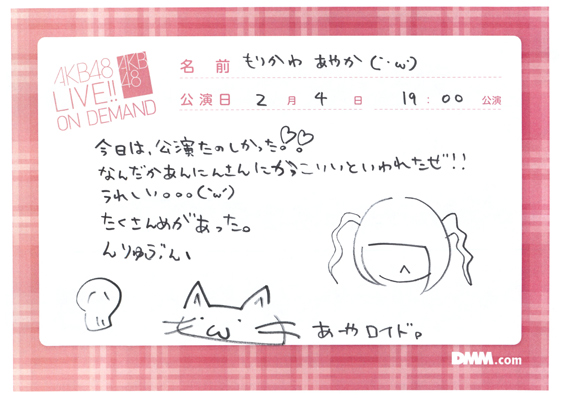 AKB48
LIVE!!
ON DEMAND
AKB
48
名前 もりかわ あやか (`・ω・´)
公演日 2月4日 19:00 公演
今日は、公演たのしかった♡♡
なんだかあんにんさんにがっこいいといわれたぜ!!
うれしい。。。(´ω`)
たくさんめがあった。
んりゅうぶん、
あやロイド。
DMM.com